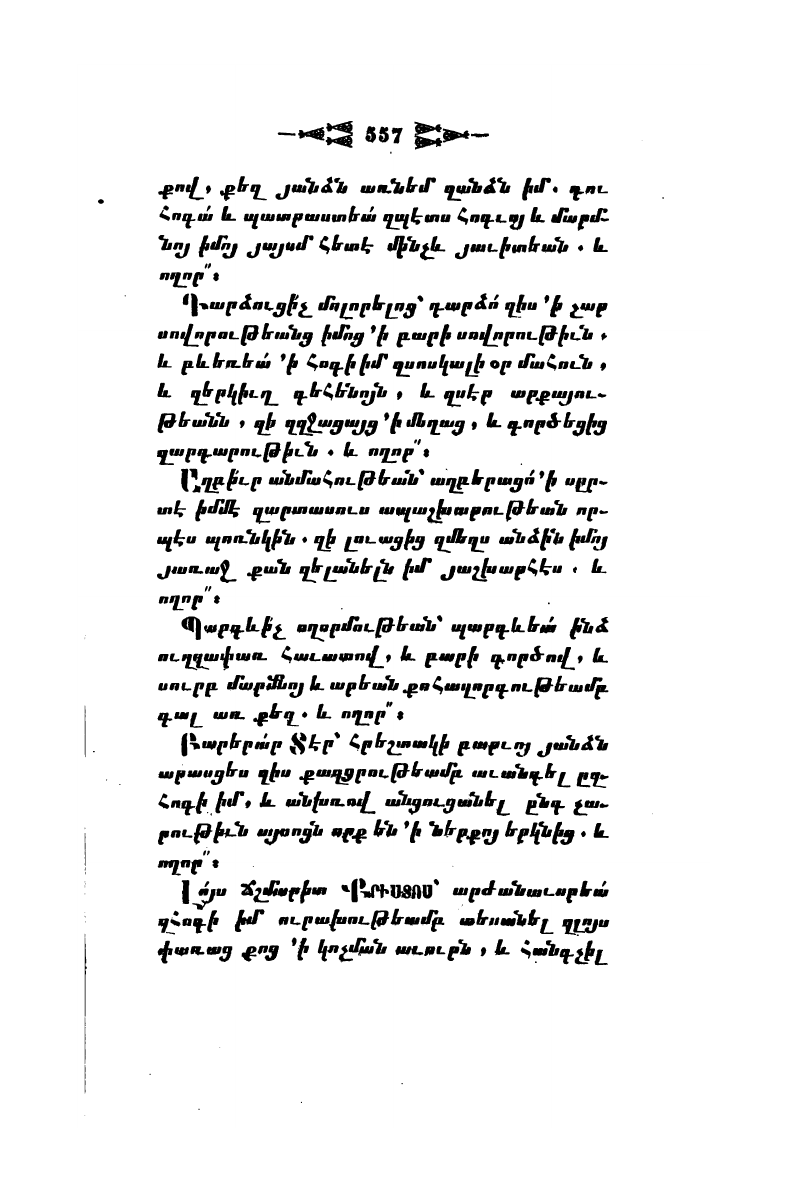 557
քով, քեզ յանձն առնեմ զանձն իմ. գու
հոգա՛ և պատրաստեա՛ զպէտս հոգւոյ և մարմ-
նոյ իմոյ յայսմ հետէ մինչև յաւիտեան. և
ողոր՟։
Դարձուցի՛չ մոլորելոց՝ դարձո՛ զիս ՚ի չար
սովորութեանց իմոց ՚ի բարի սովորութիւն,
և բևեռեա՛ ՚ի հոգի իմ զսոսկալի օր մահուն,
և զերկիւղ գեհենոյն, և զսէր արքայու-
թեանն, զի զղջացայց ՚ի մեղաց, և գործեցից
զարդարութիւն. և ողոր՟։
Աղբի՛ւր անմահութեան՝ աղբերացո՛ ՚ի սըր-
տէ իմմէ զարտասուս ապաշխարութեան որ-
պէս պոռնկին. զի լուացից զմեղս անձին իմոյ
յառաջ քան զելանելն իմ յաշխարհէս. և
ողոր՟։
Պարգևի՛չ ողորմութեան՝ պարգևեա՛ ինձ
ուղղափառ հաւատով, և բարի գործով, և
սուրբ մարմնոյ և արեան քո հաղորդութեամբ
գալ առ քեզ. և ողոր՟։
Բարերա՛ր Տէր՝ հրեշտակի բարւոյ յանձն
արասցես զիս քաղցրութեամբ աւանդել ըզ-
հոգի իմ, և անխռով անցուցանել ընդ չա-
րութիւն այսոցն որք են ՚ի ներքոյ երկնից. և
ողոր՟։
Լո՛յս ճշմարիտ ՔՐԻՍՏՈՍ՝ արժանաւորեա՛
զհոգի իմ ուրախութեամբ տեսանել զլոյս
փառաց քոց ՚ի կոչման աւուրն, և հանգչիլ